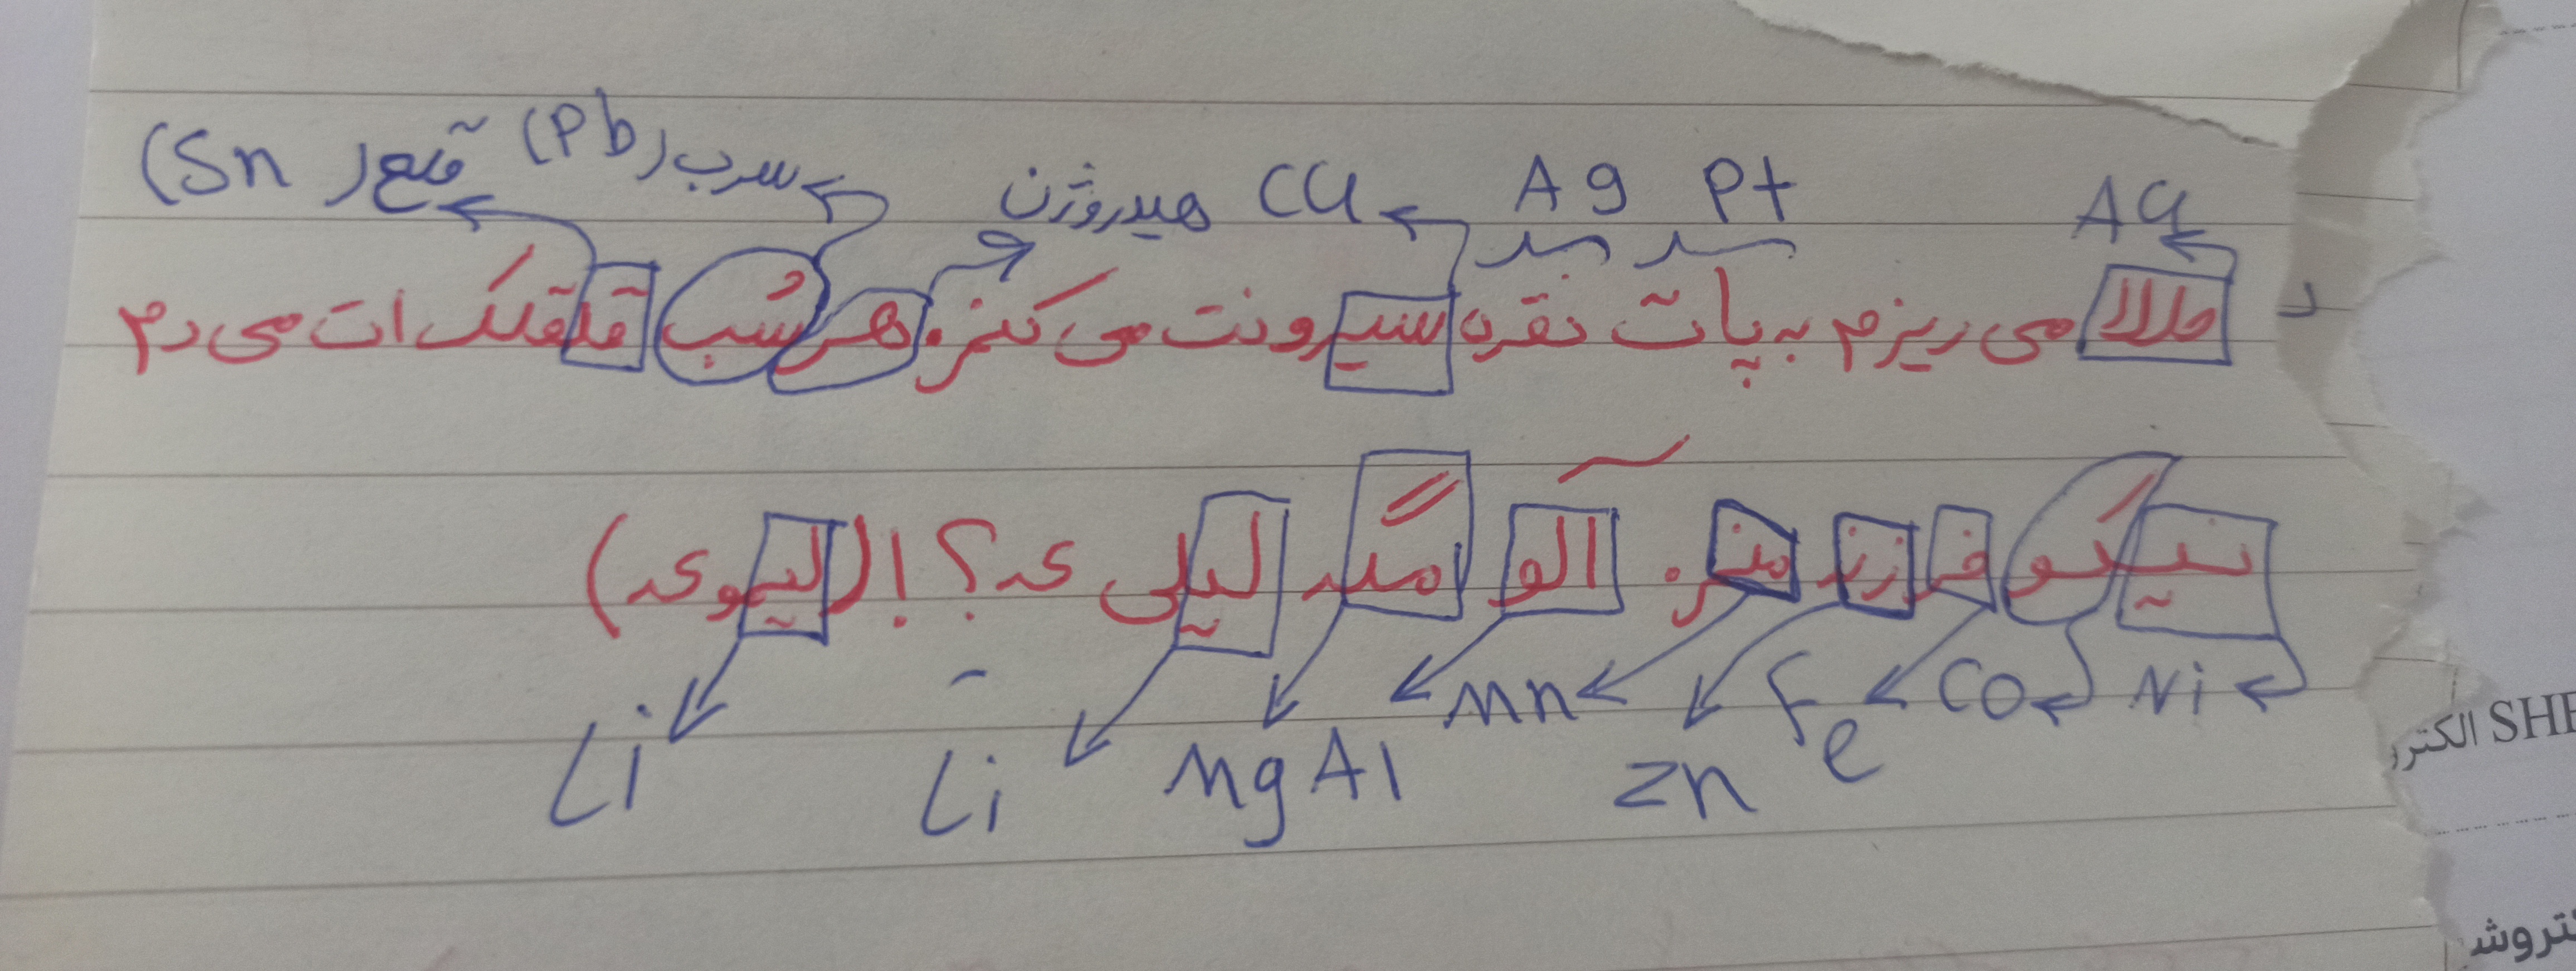 قلع (Sn) سرب (Pb) هیدروژن Cu Ag Pt Au
طلا می ریزم به پات نقره سیرونت می کنم. هر شب قلقلک ات می دم
نیکو فرزند منم. آلو مگه لیلی یه؟! (لیموی یه)
Ni Co Fe Zn Mn Al Mg Li Li
SHE الکترو
کتروش